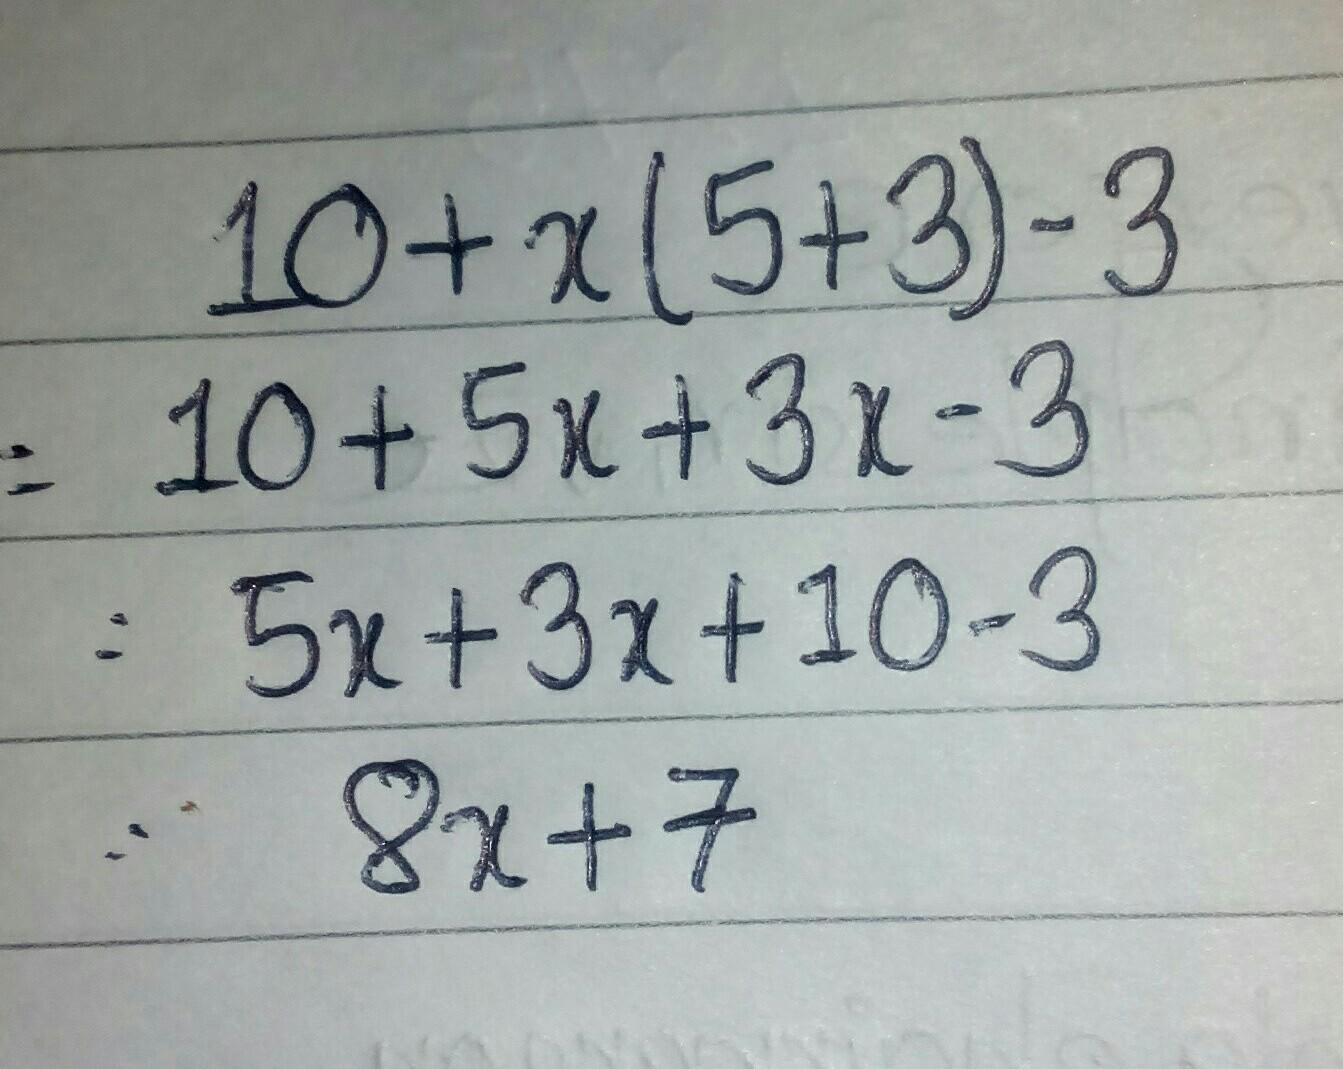 10+x(5+3)-3
= 10+5x+3x-3
= 5x+3x+10-3
= 8x+7